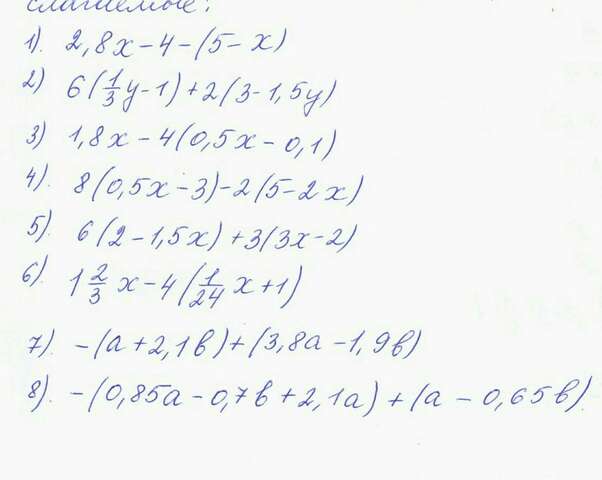 слагаемые:
1). 2,8x - 4 - (5 - x)
2) 6(1/3 y - 1) + 2(3 - 1,5y)
3) 1,8x - 4(0,5x - 0,1)
4). 8(0,5x - 3) - 2(5 - 2x)
5). 6(2 - 1,5x) + 3(3x - 2)
6). 1 2/3 x - 4(1/24 x + 1)
7). -(a + 2,1в) + (3,8a - 1,9в)
8). -(0,85a - 0,7в + 2,1a) + (a - 0,65в)